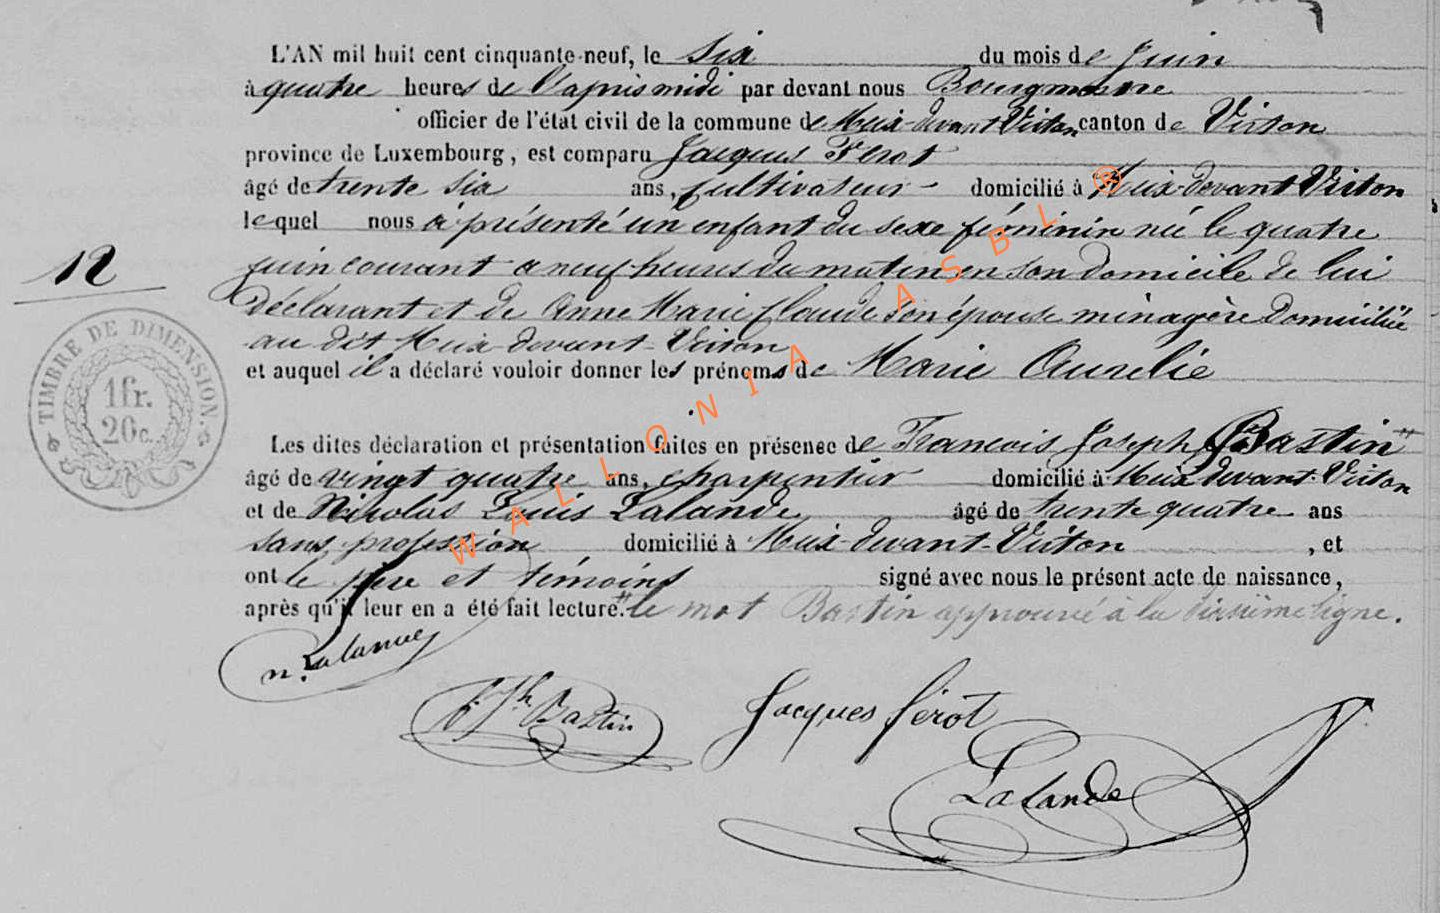 L'AN mil huit cent cinquante-neuf, le six du mois de Juin
à quatre heures de l'après midi par devant nous Bourgmestre
officier de l'état civil de la commune de Meix-devant Virton canton de Virton
province de Luxembourg, est comparu Jacques Férot
âgé de trente six ans, cultivateur - domicilié à Meix-devant Virton
lequel nous a présenté un enfant du sexe féminin née le quatre
12
juin courant a neuf heures du matin en son domicile de lui
déclarant et de Anne Marie Claude son épouse ménagère domiciliée
au dit Meix-devant-Virton
et auquel il a déclaré vouloir donner les prénoms de Marie Aurelie
TIMBRE DE DIMENSION.
1fr.
20c.
Les dites déclaration et présentation faites en présence de Francois Joseph Bastin #
âgé de vingt quatre ans, charpentier domicilié à Meix devant-Virton
et de Nicolas Louis Lalande âgé de trente quatre ans
sans profession domicilié à Meix-devant-Virton , et
ont le père et témoins signé avec nous le présent acte de naissance,
après qu'il leur en a été fait lecture. # le mot Bastin approuvé à la dixième ligne.
n. Lalande
f. Jh Bastin
Jacques férot
Lalande
WALLONIA ASBL ®